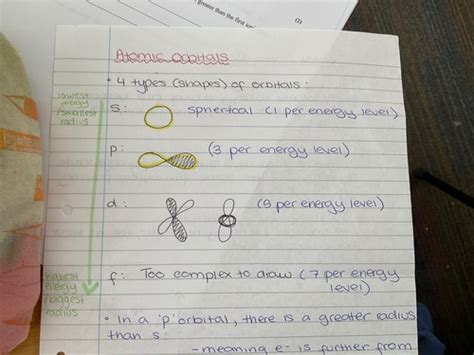 greater than the first ion
(2)
Atomic Orbitals
• 4 types (shapes) of orbitals:
lowest
energy
/smallest
radius
s: spherical (1 per energy level)
p: (3 per energy level)
d: (5 per energy level)
highest
energy
/largest
radius
f: Too complex to draw (7 per energy
level)
• In a 'p' orbital, there is a greater radius
than s:
- meaning e- is further from